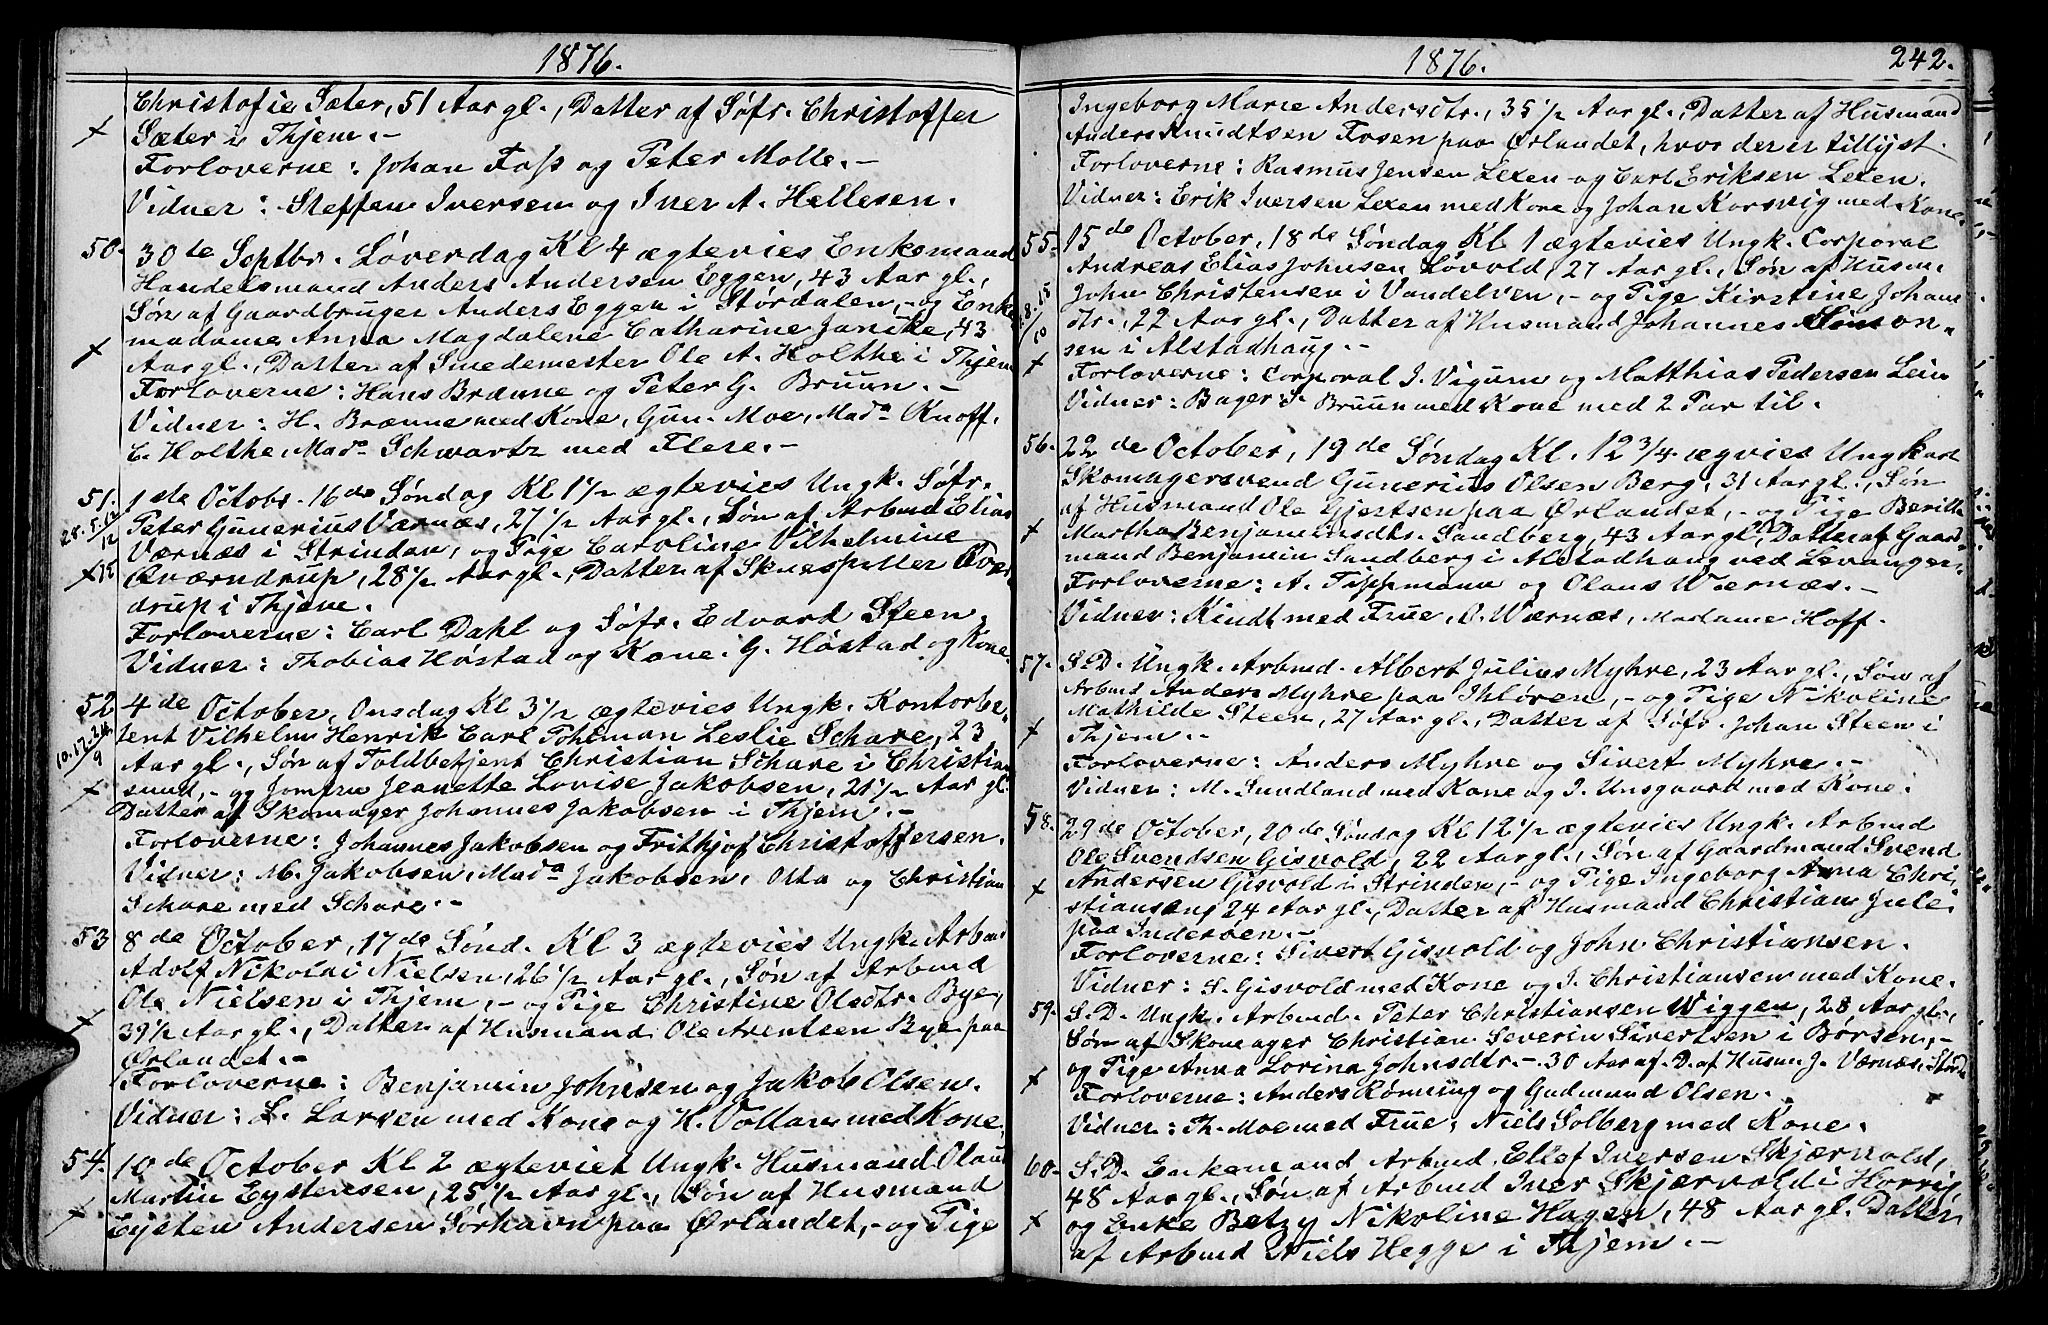 1876.
Christofie Sæter, 51 Aar gl., Datter af Søfr. Christoffer
Sæter i Thjem.-
Forloverne: Johan Foss og Peter Molle.-
Vidner: Steffen Iversen og Iver A. Hellesen.
50. 30te Septbr. Løverdag Kl 4 ægtevies Enkemand
Handelsmand Anders Andersen Eggen, 43 Aar gl.,
Søn af Gaardbruger Anders Eggen i Størdalen,- og Enke
madame Anna Magdalene Catharine Janike, 43
Aar gl., Datter af Smedemester Ole A. Holthe i Thjem
Forloverne: Hans Brænne og Peter G. Bruun.-
Vidner: H. Brænne med Kone, Gun. Moe, Mada Knoff.
C. Holthe, Mada Schwartz med Flere.-
51. 1ste Octobr. 16de Søndag Kl 1 1/2 ægtevies Ungk. Søfr.
Peter Gunerius Værnæs, 27 1/2 Aar gl., Søn af Arbmd Elias
Værnæs i Strindan, og Pige Caroline Vilhelmine
Qværndrup, 28 1/2 Aar gl., Datter af Skuespiller Qvær
drup i Thjem.
Forloverne: Carl Dahl og Søfr. Edvard Steen,
Vidner: Thobias Høstad og Kone. G. Høstad og Kone.
52 4de October, Onsdag Kl 3 1/2 ægtevies Ungk. Kontorbe-
tent Vilhelm Henrik Carl Pohlman Leslie Schare, 23
10. 17. 24/9
Aar gl., Søn af Toldbetjent Christian Schare i Christian
sund,- og Jomfru Jeanette Lovise Jakobsen, 21 1/2 Aar gl.
Datter af Skomager Johannes Jakobsen i Thjem.-
Forloverne: Johannes Jakobsen og Frithjof Christoffersen.
Vidner: M. Jakobsen, Mada Jakobsen, Osta og Christian
Schare med Schare.-
53 8de October, 17de Sønd. Kl 3 ægtevies Ungk. Arbm.
Adolf Nikolai Nielsen, 26 1/2 Aar gl., Søn af Arbmd
Ole Nielsen i Thjem,- og Pige Christine Olsdtr. Bye,
39 1/2 Aar gl., Datter af Husmand Ole Arentsen Bye paa
Ørlandet.-
Forloverne: Benjamin Johnsen og Jakob Olsen.
Vidner: L. Larsen med Kone og H. Vollan med Kone.
54. 10de October Kl 2 ægteviet Ungk. Husmand Olaus
Martin Eystensen, 25 1/2 Aar gl., Søn af Husmand
Eysten Andersen Sørhavn paa Ørlandet,- og Pige
1876. 242.
Ingeborg Marie Andersdtr., 35 1/2 Aar gl., Datter af Husmand
Anders Knudtsen Fosen paa Ørlandet, hvor der er tillyst.
Forloverne: Rasmus Jensen Lexen og Carl Eriksen Lexen.
Vidner: Erik Iversen Lexen med Kone og Johan Korsvig med Kone.
55. 15de October, 18de Søndag Kl 1 ægtevies Ungk. Corporal
Andreas Elias Johnsen Løvold, 27 Aar gl., Søn af Husm.
John Christensen i Vandelven,- og Pige Kirstine Johans
dtr., 22 Aar gl., Datter af Husmand Johannes Simon-
sen i Alstadhaug.-
Forloverne: Corporal J. Vigum og Matthias Pedersen Lein
Vidner: Bager S. Bruun med Kone med 2 Par til.
56. 22de October, 19de Søndag Kl. 12 3/4 ægvies Ungkarl
Skomagersvend Gunerius Olsen Berg, 31 Aar gl., Søn
af Husmand Ole Gjertsen paa Ørlandet,- og Pige Berith
Martha Benjaminsdtr. Sandberg, 43 Aar gl., Datter af Gaard-
mand Benjamin Sandberg i Alstadhaug ved Levanger.
Forloverne: A. Tippmann og Olaus Wærnæs.-
Vidner: Kindt med Frue, O. Wærnæs, Madame Hoff.
57. S.D. Ungk. Arbmd. Albert Julius Myhre, 23 Aar gl., Søn af
Arbmd Anders Myhre paa Ihløren,- og Pige Nikoline
Mathilde Steen, 27 Aar gl., Datter af Søfr. Johan Steen i
Thjem.-
Forloverne: Anders Myhre og Sivert Myhre.-
Vidner: M. Sundland med Kone og J. Unsgaard med Kone.
58. 29de October, 20de Søndag Kl 12 1/2 ægtevies Ungk. Arbmd
Ole Svendsen Gisvold, 22 Aar gl., Søn af Gaardmand Svend
Andersen Gisvold i Strinden,- og Pige Ingeborg Anna Chri
stiansdtr 24 Aar gl., Datter af Husmand Christian Jule
paa Inderøen.-
Forloverne: Sivert Gisvold og John Christiansen.
Vidner: S. Gisvold med Kone og J. Christiansen med Kone.
59. S.D. Ungk. Arbmd. Peter Christiansen Wiggen, 28 Aar gl.,
Søn af Skomager Christian Severin Sivertsen i Børsen,-
og Pige Anna Lorina Johnsdtr.- 30 Aar af. D. af Husm. J. Værnæs i Størd
Forloverne: Anders Rønning og Gudmund Olsen.
Vidner: Th. Moe med Frue, Niels Solberg med Kone.
60. S.D. Enkemand Arbmd. Ellef Iversen Skjærvold,
48 Aar gl., Søn af Arbmd Iver Skjærvold i Horrig
og Enke Betzy Nikoline Hagen, 48 Aar gl. Datter
af Arbmd Niels Hegge i Thjem.-